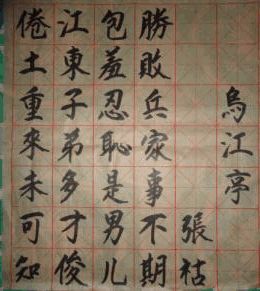 烏江亭
張祜
勝敗兵家事不期
包羞忍恥是男儿
江東子弟多才俊
倦土重來未可知